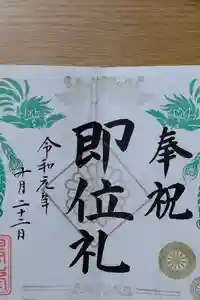 奉祝
即位礼
令和元年
十月二十二日